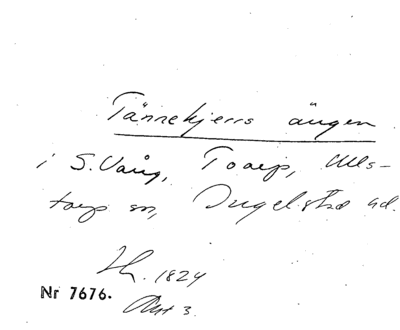 Tännekjerrs ängen
i S. Vång, Toarp, Ulls-
torp sn, Ingelstad hd.
1824
Nr 7676. Akt 3.